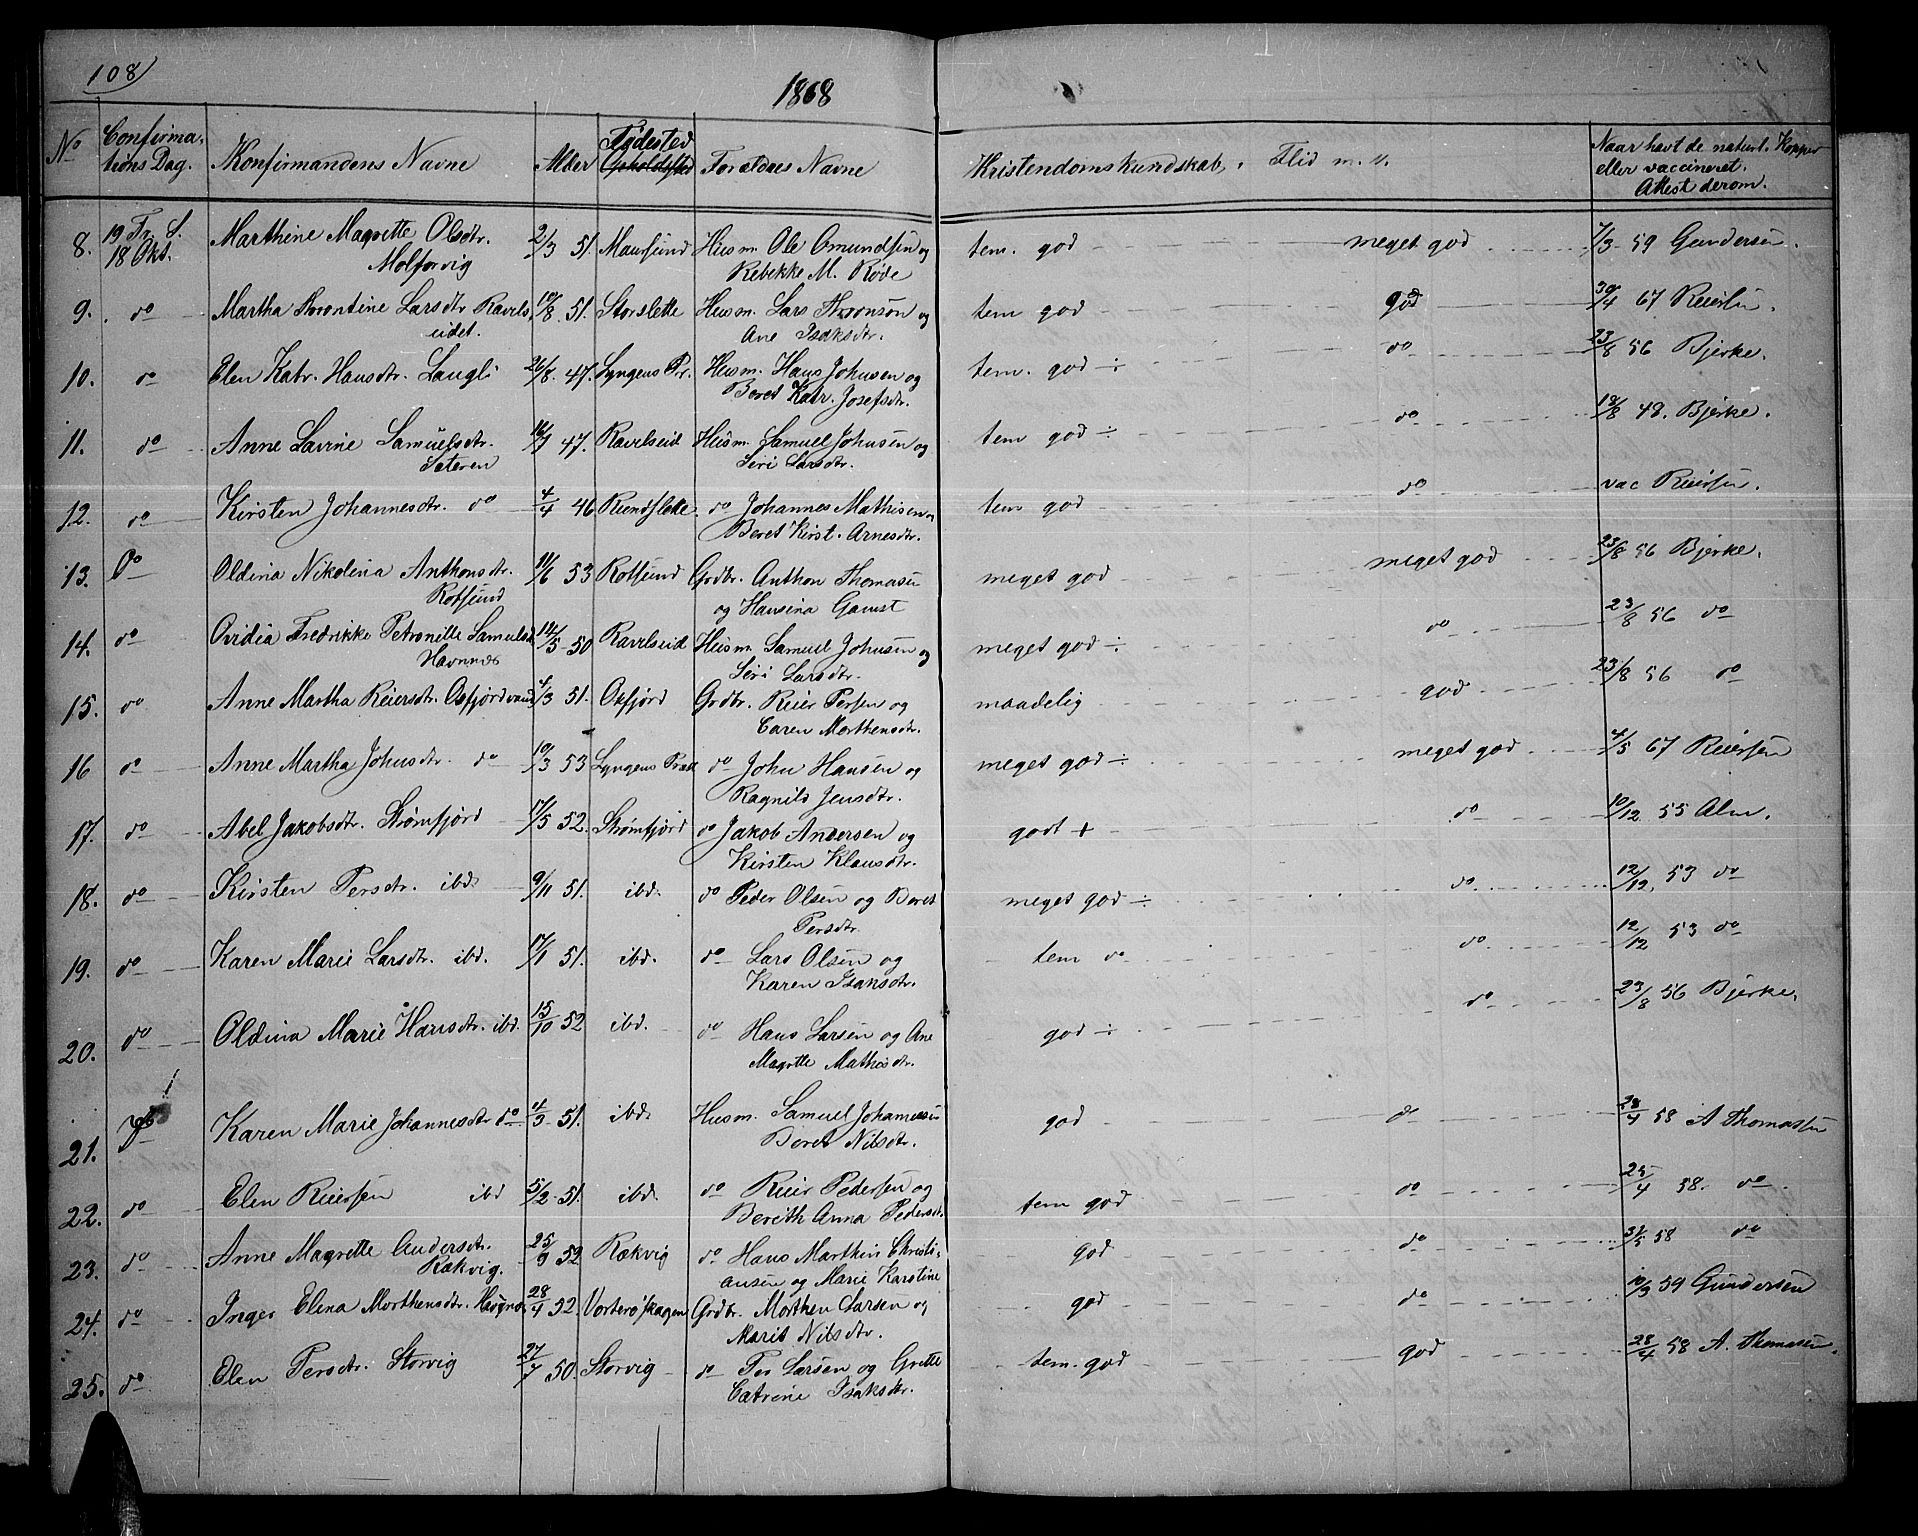 108
1868
No
Confirma-
tions Dag.
Konfirmandens Navne
Alder
Fødested
Forældres Navne
Kristendomskundskab, Flid m. v.
Naar havt de naturl. Kopper
eller vaccineret.
Attest derom.
8. 19 Tr. S. 18 Okt. Marthine Magrette Olsdtr. 2/3 51. Mausund Husm. Ole Amundsen og tem. god meget god 7/3 59 Gundersen.
Molforvig Rebekke M. Røde
9. do Martha Korentine Larsdtr. Ravels 10/8 51. Storslette Husm. Lars Aronsøn og tem god god 30/4 67 Reiersen.
eidet. Ane Isaksdtr.
10. do Elen Katr. Hansdtr. Langli 26/8 47. Lyngens Pr. Husm. Hans Johnsen og tem. god ÷ do 23/8 56 Bjerke.
Beret Katr. Josefsdtr.
11. do Anne Lavine Samuelsdtr. 16/1 47. Ravelseid Husm. Samuel Johnsen og tem god ÷ do 18/8 48. Bjerke.
Sæteren Siri Larsdtr.
12. do Kirsten Johannesdtr. do 4/4 46 Reindslette do Johannes Mathisen og tem god do vac Reiersen.
Beret Kirst. Arnesdtr.
13. Do Oldina Nikolina Anthonsdtr. 11/6 53 Rotsund Grdbr. Anthon Thomasen meget god meget god 23/8 56 Bjerke.
Rotsund og Hansina Gamst
14. do Ovidia Fredrikke Petronille Samuelsd 14/5 50 Ravelseid Husm. Samuel Johnsen og meget god ÷ do 23/8 56 do
Havnnes Siri Larsdtr.
15. do Anne Martha Reiersdtr. Oxfjordvand 4/3 51. Oxfjord Grdbr. Reier Persen og maadelig god 23/8 56 do
Caren Morthensdtr.
16 do Anne Martha Johnsdtr. do 10/3 53 Lyngens Præst do John Hansen og meget god ÷ meget god 4/5 67 Reiersen
Ragnild Jensdtr.
17. do Abel Jakobsdtr. Strømfjord 17/5 52. Strømfjord do Jakob Andersen og godt + do 10/12 55 Alm.
Kirsten Klausdtr.
18. do Kirsten Persdtr. ibd. 9/11 51. ibd. do Peder Olsen og Beret meget god ÷ do 12/12. 53 do
Persdtr.
19. do Karen Marie Larsdtr. ibd. 17/1 51. ibd. do Lars Olsen og tem do do 12/12 53 do
Karen Isaksdtr.
20. do Oldina Marie Hansdtr. ibd. 15/10 52 ibd. do Hans Larsen og Ane god ÷ do 23/8 56 Bjerke.
Magrette Mathisdtr.
21. Do Karen Marie Johannesdtr do 4/3 51. ibd. Husm. Samuel Johannessen god do 28/4 58 A Thomassen
Beret Nilsdtr.
22. do Elen Reiersen ibd 5/2 51. ibd. do Reier Pedersen og tem god do 25/4 58. do
Berith Anna Pedersdtr
23. do Anne Magrette Andersdtr. 25/9 52 Rækvig do Hans Marthin Christi- god do 31/5 58 do
Rækvig. ansen og Marie Karstine
24. do Inger Elena Morthensdtr. Høgnæs 28/4 52. Vorterøskagen Grdbr. Morthen Larsen og god do 10/3 59 Gundersen
Marit Nilsdtr.
25. do Elen Persdtr. Storvig 27/7 50. Storvig do Per Larsen og Grette tem. god god 28/4 58 A. Thomasen.
Catrine Isaksdtr.